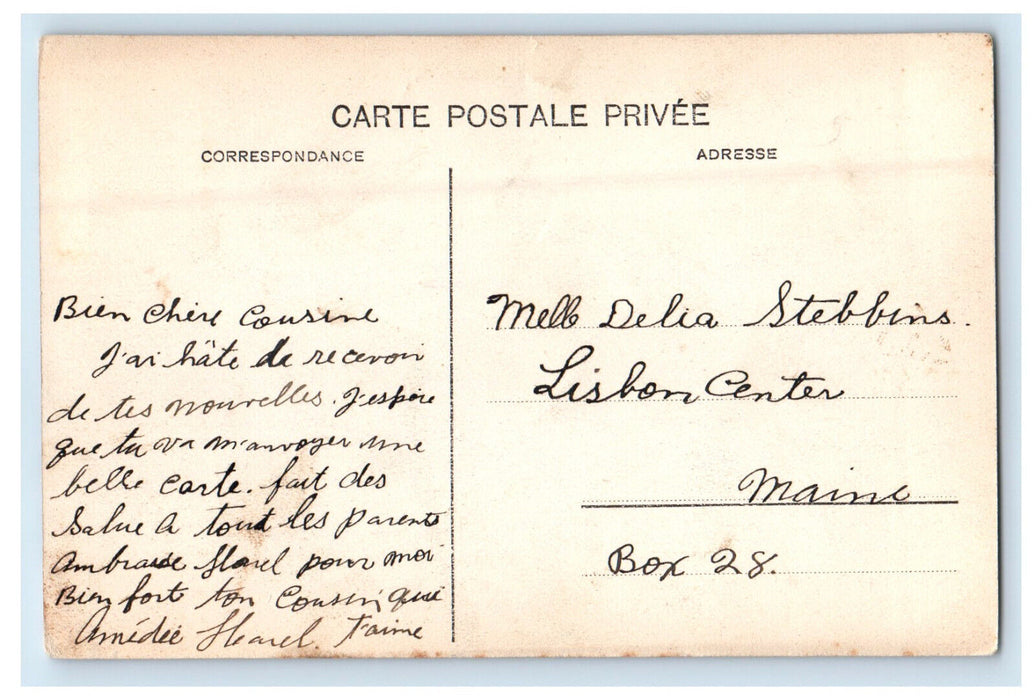 CARTE POSTALE PRIVÉE
CORRESPONDANCE
ADRESSE
Bien chère Cousine
J'ai hâte de recevoir
de tes nouvelles. J'espère
que tu va m'anvoyer une
belle carte. fait des
Salue a tout les parents
Ambrasse pour moi
Bien fort ton Cousin qui
Amédée t'aime
Melle Delia Stebbins.
Lisbon Center
Maine
Box 28.